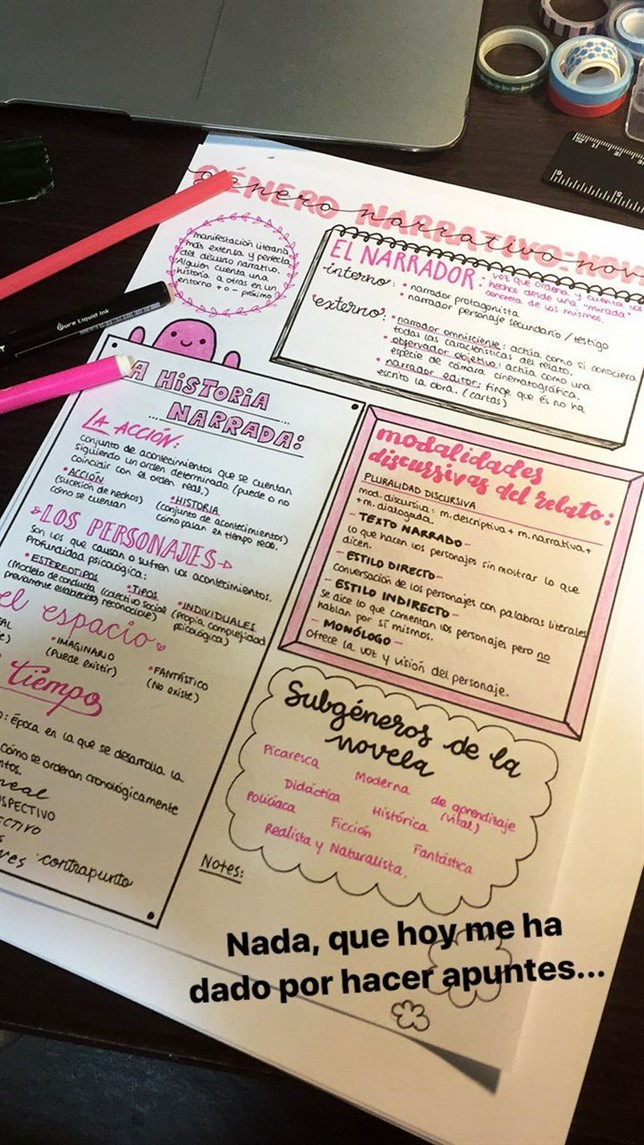 GÉNERO NARRATIVO: NOV
género narrativo nov
manifestación literaria
más extensa y perfecta
del discurso narrativo.
Alguien cuenta una
historia a otras en un
entorno + o - próximo
EL NARRADOR: voz que ordena y cuenta los
hechos desde una "mirada"
concreta de los mismos.
interno: • narrador protagonista
• narrador personaje secundario / testigo
externo: • narrador omnisciente: actúa como si conociera
todas las características del relato.
• observador objetivo: actúa como una
especie de cámara cinematográfica.
• narrador editor: finge que él no ha
escrito la obra. (cartas)
LA HISTORIA
NARRADA:
LA ACCIÓN:
Conjunto de acontecimientos que se cuentan
siguiendo un orden determinado (puede o no
coincidir con el orden real)
• ACCIÓN
(sucesión de hechos)
cómo se cuentan
• HISTORIA
(conjunto de acontecimientos)
Cómo pasan en tiempo real.
LOS PERSONAJES
Son los que causan o sufren los acontecimientos.
Profundidad psicológica:
• ESTEREOTIPOS
(Modelo de conducta
previamente establecido)
• TIPOS
(colectivo social
reconocible)
• INDIVIDUALES
(Propia complejidad
psicológica)
el espacio
EAL
e)
• IMAGINARIO
(Puede existir)
• FANTÁSTICO
(No existe)
tiempo
o: época en la que se desarrolla la
Cómo se ordenan cronológicamente
ntos.
neal
SPECTIVO
ECTIVO
res
contrapunto
modalidades
discursivas del relato:
PLURALIDAD DISCURSIVA
mod. discursiva: m. descriptiva + m. narrativa +
+ m. dialogada.
- TEXTO NARRADO -
lo que hacen los personajes sin mostrar lo que
dicen.
- ESTILO DIRECTO -
Conversación de los personajes con palabras literales
- ESTILO INDIRECTO -
Se dice lo que comentan los personajes pero no
hablan por sí mismos.
- MONÓLOGO -
Ofrece la voz y visión del personaje.
Subgéneros de la
novela
Picaresca
Moderna
de aprendizaje
(vital)
Didáctica
Histórica
Policíaca
Ficción
Fantástica
Realista y Naturalista.
Notes:
Nada, que hoy me ha
dado por hacer apuntes...
Pure Liquid Ink